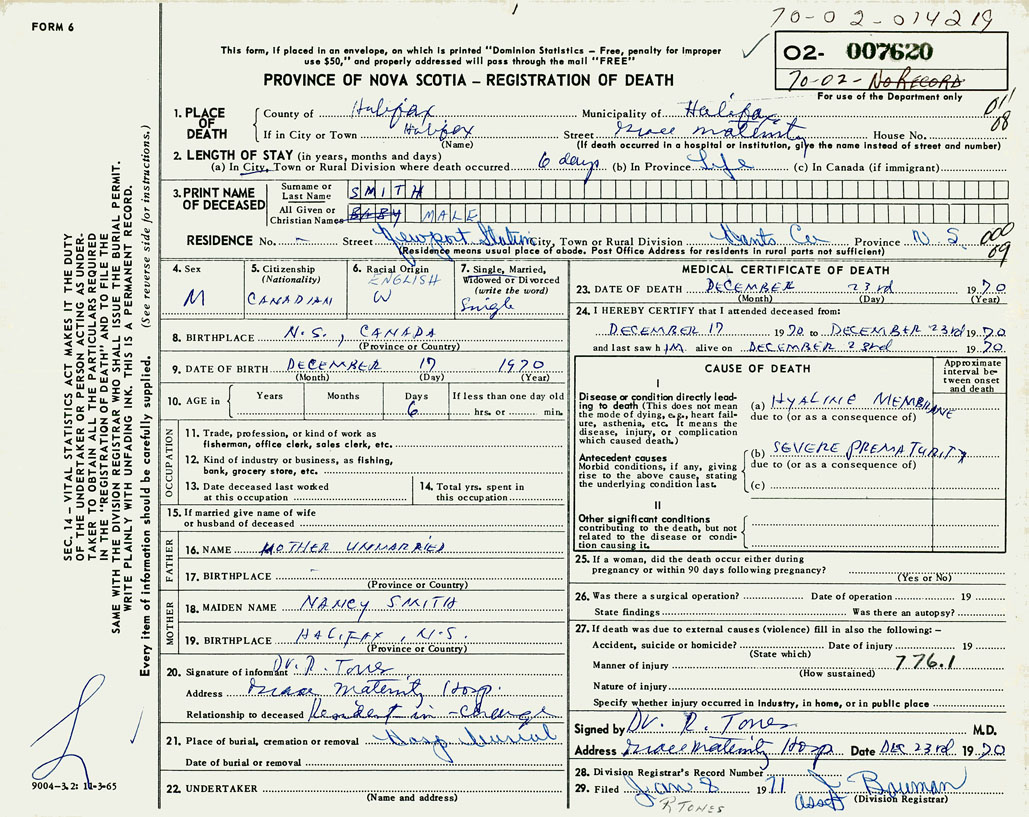 FORM 6
70-02-014219
This form, if placed in an envelope, on which is printed "Dominion Statistics – Free, penalty for improper
use $50," and properly addressed will pass through the mail "FREE"
02- 007620
70-02- NO RECORD
For use of the Department only
PROVINCE OF NOVA SCOTIA – REGISTRATION OF DEATH
1. PLACE OF DEATH
County of Halifax Municipality of Halifax 011
If in City or Town Halifax Street Grace Maternity House No. 08
(Name) (If death occurred in a hospital or institution, give the name instead of street and number)
2. LENGTH OF STAY (in years, months and days)
(a) In City, Town or Rural Division where death occurred 6 days (b) In Province Life (c) In Canada (if immigrant)
3. PRINT NAME OF DECEASED
Surname or Last Name SMITH
All Given or Christian Names BABY MALE
RESIDENCE No. – Street Newport Station City, Town or Rural Division Hants Co Province N.S. 000
09
(Residence means usual place of abode. Post Office Address for residents in rural parts not sufficient)
4. Sex
M
5. Citizenship
(Nationality)
CANADIAN
6. Racial Origin
ENGLISH
W
7. Single, Married,
Widowed or Divorced
(write the word)
Single
8. BIRTHPLACE N.S., CANADA
(Province or Country)
9. DATE OF BIRTH DECEMBER 17 1970
(Month) (Day) (Year)
10. AGE in Years Months Days If less than one day old
6 hrs. or min.
OCCUPATION
11. Trade, profession, or kind of work as
fisherman, office clerk, sales clerk, etc.
12. Kind of industry or business, as fishing,
bank, grocery store, etc.
13. Date deceased last worked
at this occupation
14. Total yrs. spent in
this occupation
15. If married give name of wife
or husband of deceased
FATHER
16. NAME MOTHER UNMARRIED
17. BIRTHPLACE –
(Province or Country)
MOTHER
18. MAIDEN NAME NANCY SMITH
19. BIRTHPLACE HALIFAX, N.S.
(Province or Country)
20. Signature of informant Dr. R. Tones
Address Grace Maternity Hosp.
Relationship to deceased Resident in-charge
21. Place of burial, cremation or removal Hosp burial
Date of burial or removal
22. UNDERTAKER
(Name and address)
MEDICAL CERTIFICATE OF DEATH
23. DATE OF DEATH DECEMBER 23rd 1970
(Month) (Day) (Year)
24. I HEREBY CERTIFY that I attended deceased from:
DECEMBER 17 1970 to DECEMBER 23rd 1970
and last saw him alive on DECEMBER 23rd 1970
CAUSE OF DEATH
Approximate
interval be-
tween onset
and death
I
Disease or condition directly lead-
ing to death (This does not
mean the mode of dying, e.g., heart fail-
ure, asthenia, etc. It means the
disease, injury, or complication
which caused death.)
(a) HYALINE MEMBRANE
due to (or as a consequence of)
Antecedent causes
Morbid conditions, if any, giving
rise to the above cause, stating
the underlying condition last.
(b) SEVERE PREMATURITY
due to (or as a consequence of)
(c)
II
Other significant conditions
contributing to the death, but not
related to the disease or condi-
tion causing it.
25. If a woman, did the death occur either during
pregnancy or within 90 days following pregnancy?
(Yes or No)
26. Was there a surgical operation? Date of operation 19
State findings Was there an autopsy?
27. If death was due to external causes (violence) fill in also the following: –
Accident, suicide or homicide? Date of injury 19
(State which)
Manner of injury 776.1
(How sustained)
Nature of injury
Specify whether injury occurred in industry, in home, or in public place
Signed by Dr. R. Tones M.D.
Address Grace Maternity Hosp Date DEC 23rd 1970
28. Division Registrar's Record Number
29. Filed Jan 8 1971 J Bauman
Asst (Division Registrar)
R TONES
SEC. 14 – VITAL STATISTICS ACT MAKES IT THE DUTY
OF THE UNDERTAKER OR PERSON ACTING AS UNDER-
TAKER TO OBTAIN ALL THE PARTICULARS REQUIRED
IN THE "REGISTRATION OF DEATH" AND TO FILE THE
SAME WITH THE DIVISION REGISTRAR WHO SHALL ISSUE THE BURIAL PERMIT.
WRITE PLAINLY WITH UNFADING INK. THIS IS A PERMANENT RECORD.
Every item of information should be carefully supplied. (See reverse side for instructions.)
9004-3.2: 11-3-65